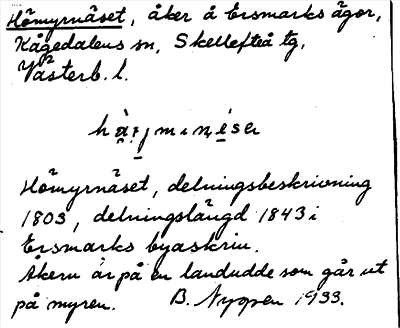 Hömyrnäset, åker å Ersmarks ägor,
Kågedalens sn, Skellefteå tg,
Västerb. l.
Hömyrnäset, delningsbeskrivning
1803, delningslängd 1843 i
Ersmarks byaskrin.
Åkern är på en landudde som går ut
på myren. B. Nyppen 1933.